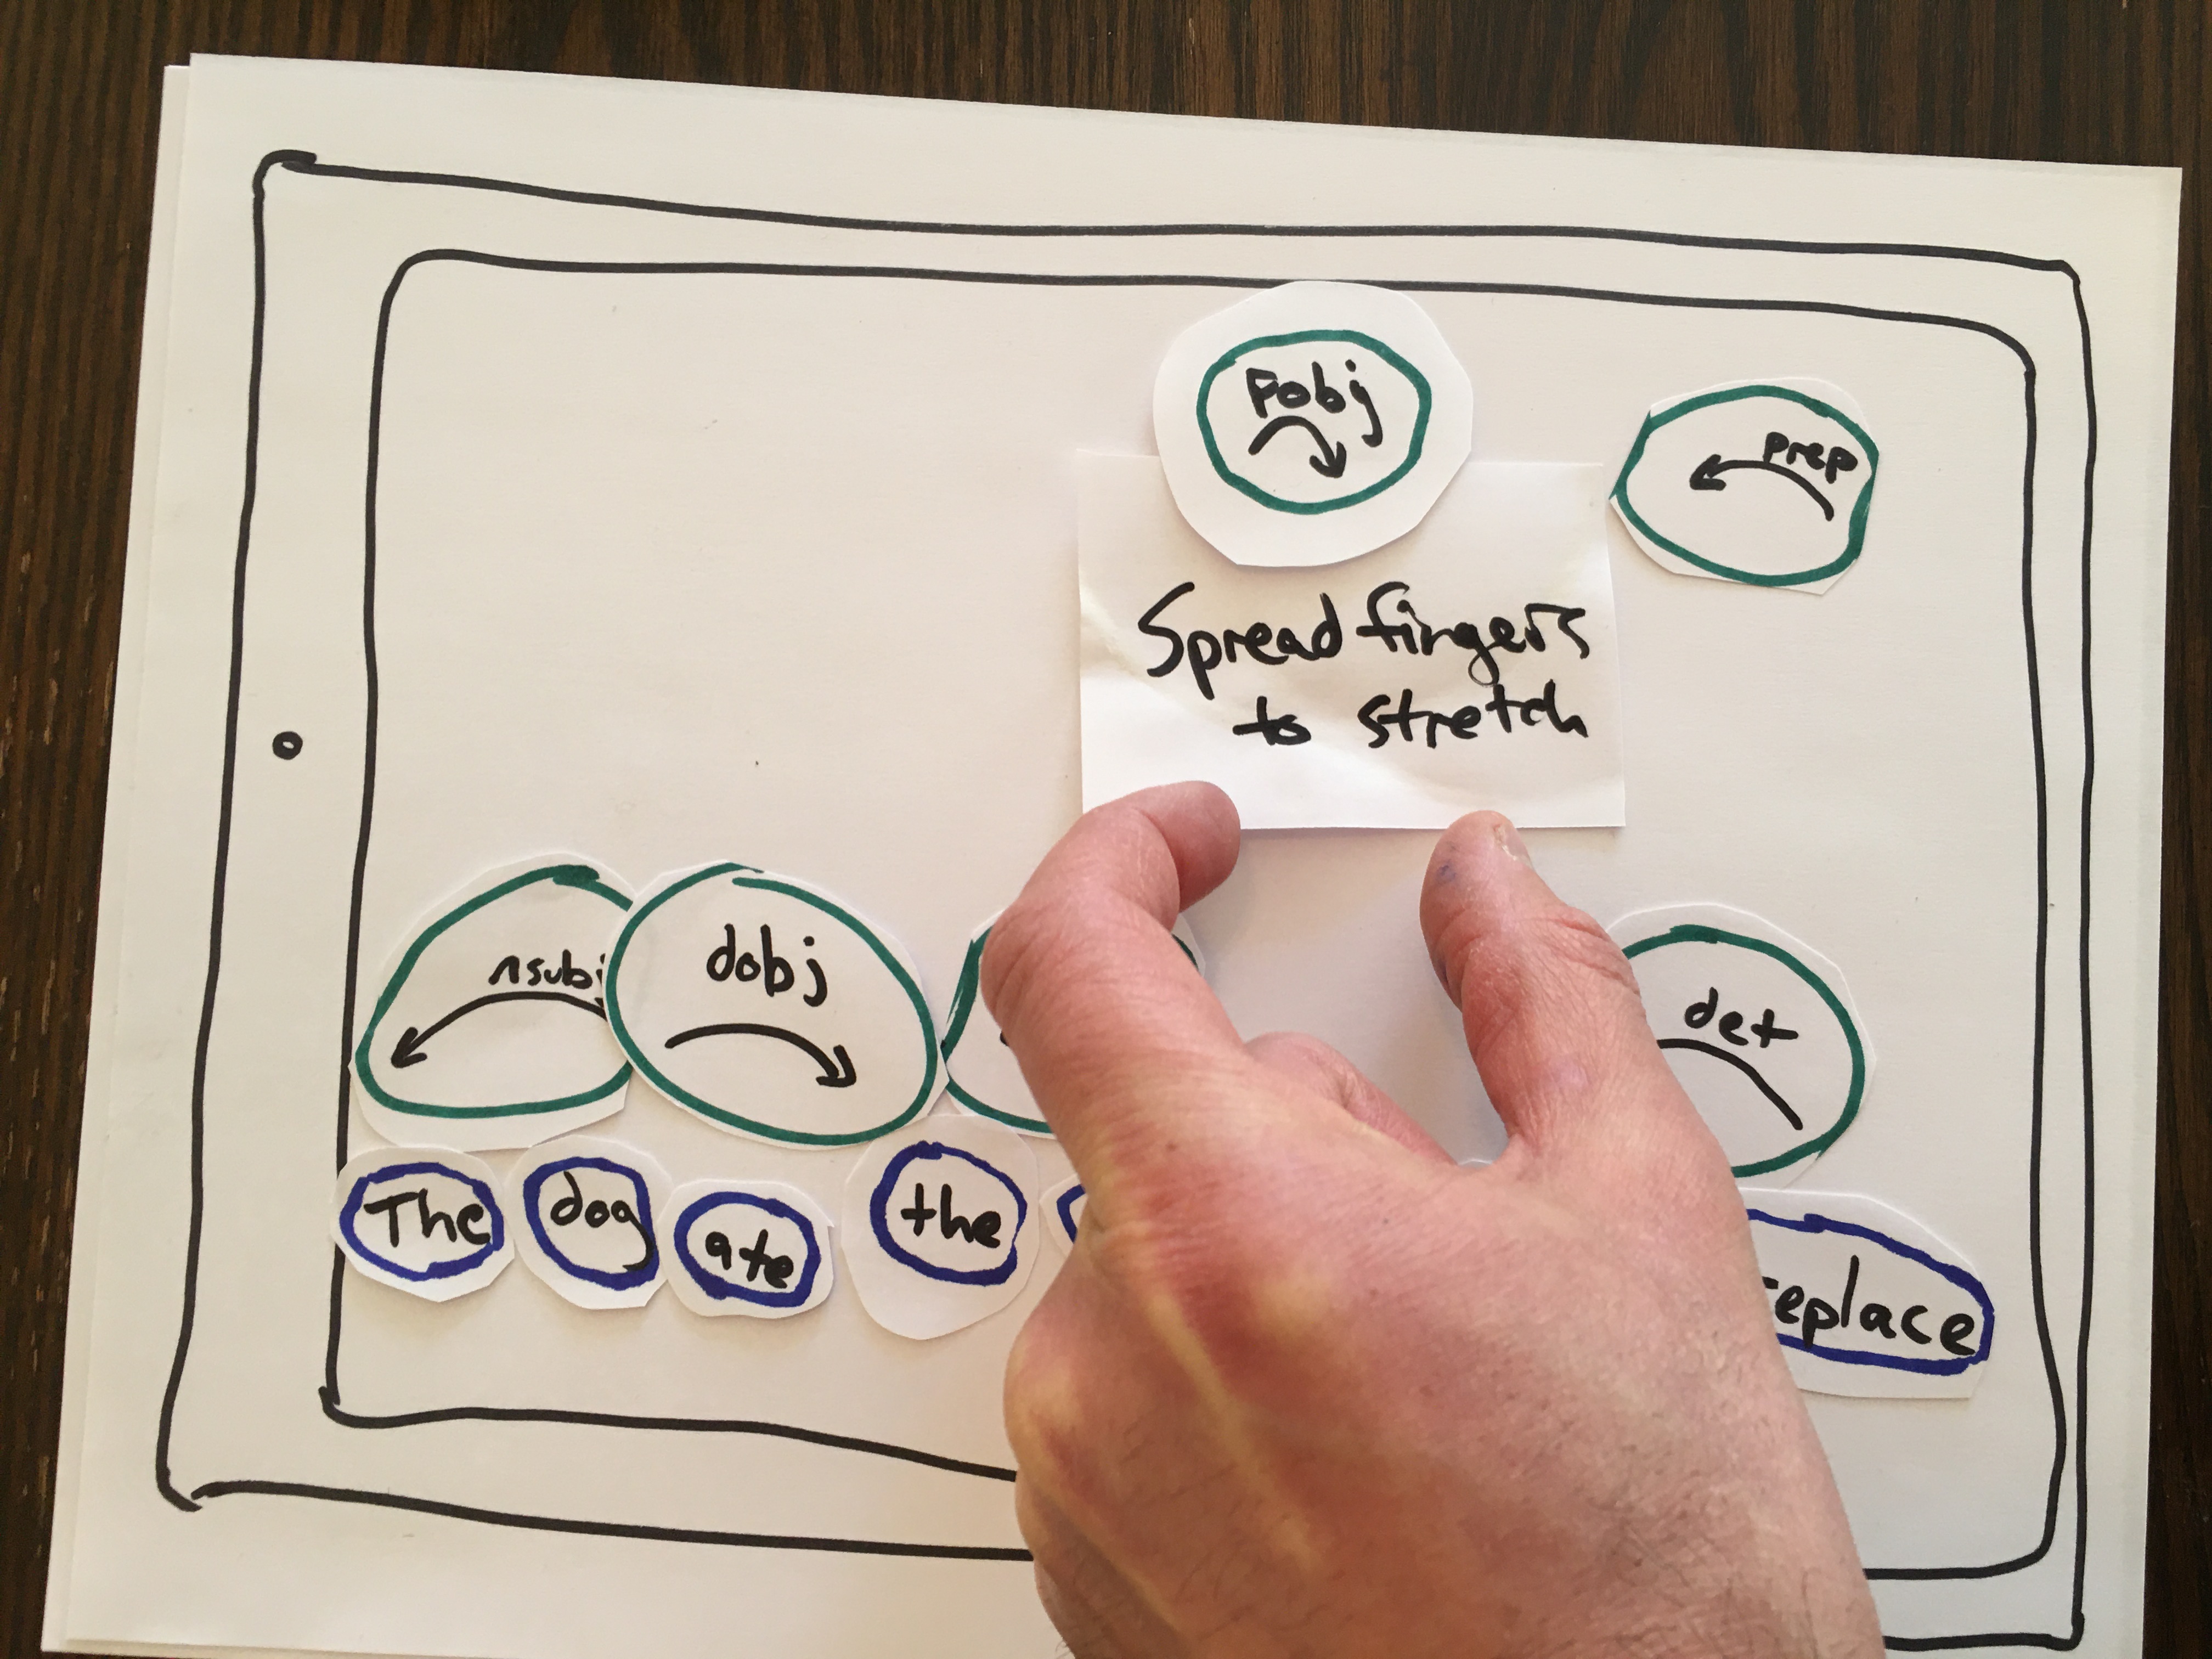 Pobj
prep
Spread fingers
to stretch
nsubj
dobj
det
The
dog
ate
the
replace